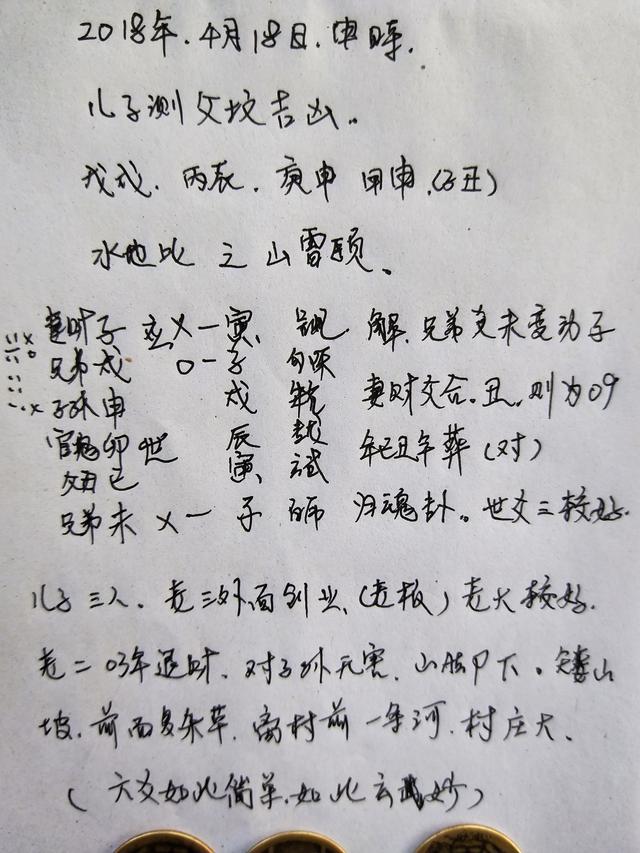 2018年.4月18日.申时.
儿子测父坟吉凶.
戊戌.丙辰.庚申 甲申.(子丑)
水地比 之 山雷颐、
妻财子 应 X一寅、 解.兄弟爻未变为子
兄弟戌 O一子 勾陈
子孙申 戌 妻财爻合.丑.则为09
官鬼卯世 辰 年己丑年葬(对)
父母巳 寅
兄弟未 X一 子 归魂卦。世爻三较好.
儿子三人.老三外面创业、(老板)老大较好.
老二03年退财.对子孙无害.山脚下。矮山
坡.前面多杂草.离村前一条河.村庄大.
(六爻如此简单.如此玄妙)